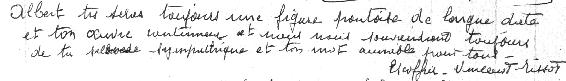 Albert tu seras toujours une figure pontoise de longue date
et ton œuvre continuera et nous nous souviendrons toujours
de ta sympathique et ton mot aimable pour tous -
Escoffier - Vincent -